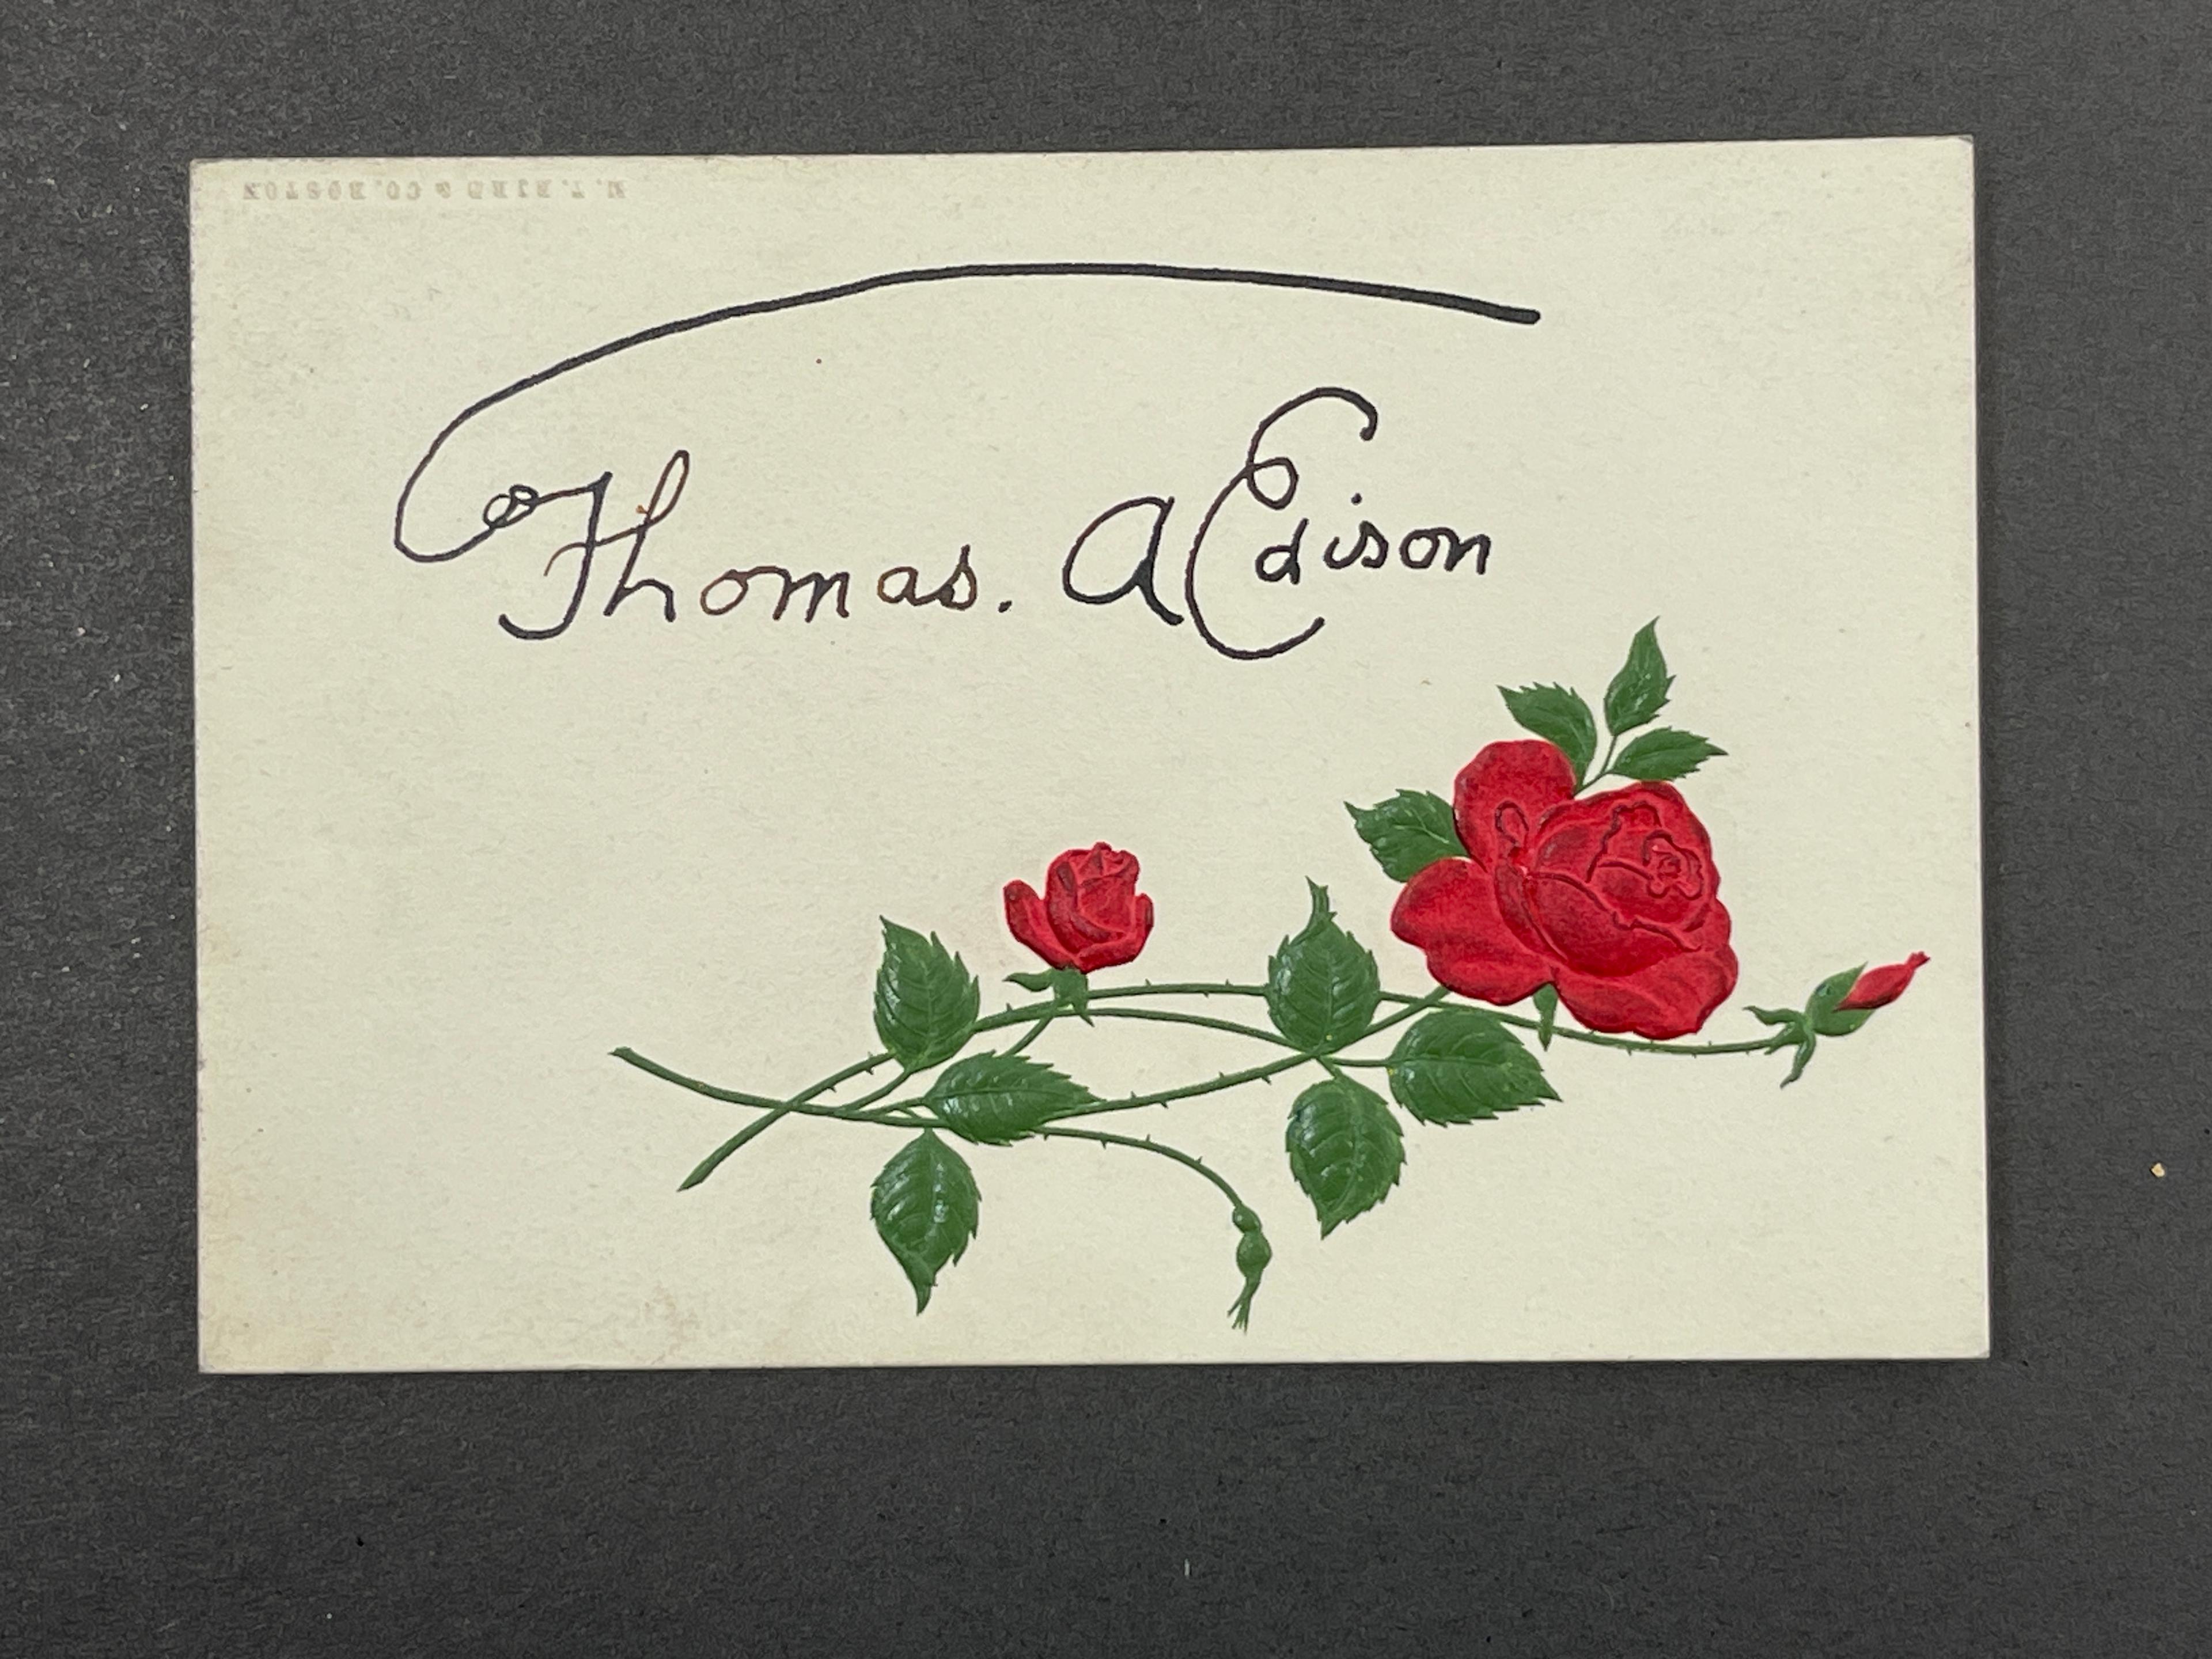 M. T. BIRD & CO. BOSTON
Thomas. A Edison